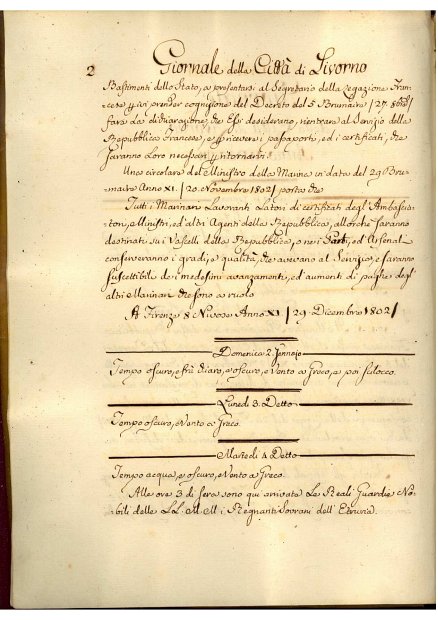 2
Giornale della Città di Livorno
Bastimenti dello Stato, a presentarsi al Segretario della Legazione Fran-
cese p. ivi prender cognizione del Decreto del 5 Brumaire /27 8bre/
fare la dichiarazione che Essi desiderano, rientrare al Servizio della
Repubblica Francese, e ricevere i passaporti, ed i certificati, che
saranno Loro necessarj p. ritornarvi.
Una circolare del Ministro della Marina in data del 29 Bru-
maire Anno XI. /20. Novembre 1802/ porta che
Tutti i Marinari Lavoranti Latori di certificati degl'Ambascia-
tori, Ministri, ed altri Agenti della Repubblica, allorchè saranno
destinati su i Vascelli della Repubblica, o nei Porti, ed Arsenal
conserveranno i gradi, e qualità, che avevano al Servizio, e saranno
suscettibile dei medesimi avanzamenti, ed aumenti di paghe degl'
altri Marinari che sono a ruolo
A Firenze 8 Nivose Anno XI /29 Dicembre 1802/
Domenica 2 Jennajo
Tempo oscuro, e frù chiaro, e oscuro, e Vento a Greco, e poi scilocco.
Lunedì 3. Detto
Tempo oscuro, e Vento a Greco.
Martedì 4 Detto
Tempo acqua, e oscuro, e Vento a Greco.
Alle ore 3 di sera sono qui arrivate Le Reali Guardie No-
bili delle LL. M.M. i Regnanti Sovrani dell'Etruria.